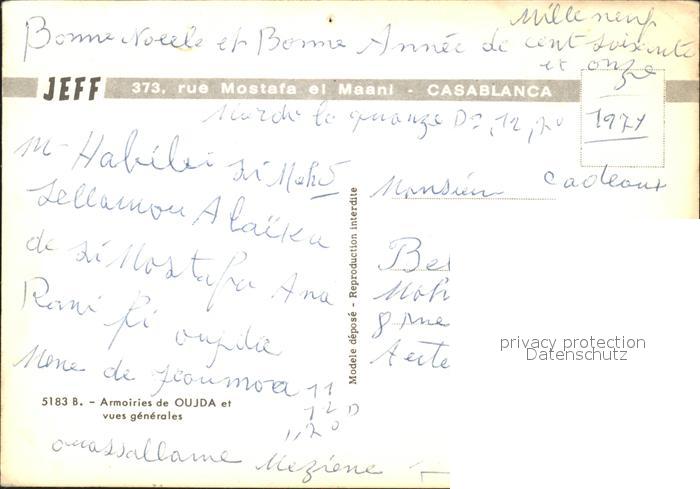 Mille neuf
Bonne Noële et Bonne Année de cent soixente
et onze
JEFF 373, rue Mostafa el Maani - CASABLANCA
Mardi le quanze D°, 12, 70
1971
M- Habibi si Moh
Sellamou Alaïka
de si Mostafa Ana
Rani fi oujda
Mene de
11
12 D
"70
ouassallame Meziene
5183 B. - Armoiries de OUJDA et
vues générales
Modèle déposé - Reproduction interdite
Monsieur cadeaux
Be
Moh
8 rue
privacy protection
Datenschutz